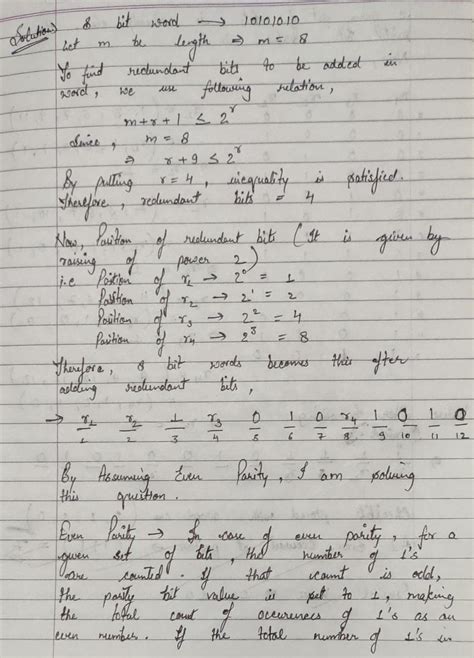 Solution> 8 bit word → 10101010
Let m be length ⇒ m = 8
To find redundant bits to be added in
word, we use following relation,
m+r+1 ≤ 2^r
Since, m = 8
⇒ r+9 ≤ 2^r
By putting r=4, inequality is satisfied.
Therefore, redundant bits = 4
Now, Position of redundant bits (It is given by
raising of power 2)
i.e Position of r1 → 2^0 = 1
Position of r2 → 2^1 = 2
Position of r3 → 2^2 = 4
Position of r4 → 2^3 = 8
Therefore, 8 bit words becomes this after
adding redundant bits,
→ r1 r2 1 r3 0 1 0 r4 1 0 1 0
1 2 3 4 5 6 7 8 9 10 11 12
By Assuming Even Parity, I am solving
this question.
Even Parity → In case of even parity, for a
given set of bits, the number of 1's
are counted. If that count is odd,
the parity bit value is set to 1, making
the total count of occurences of 1's as an
even number. If the total number of 1's in